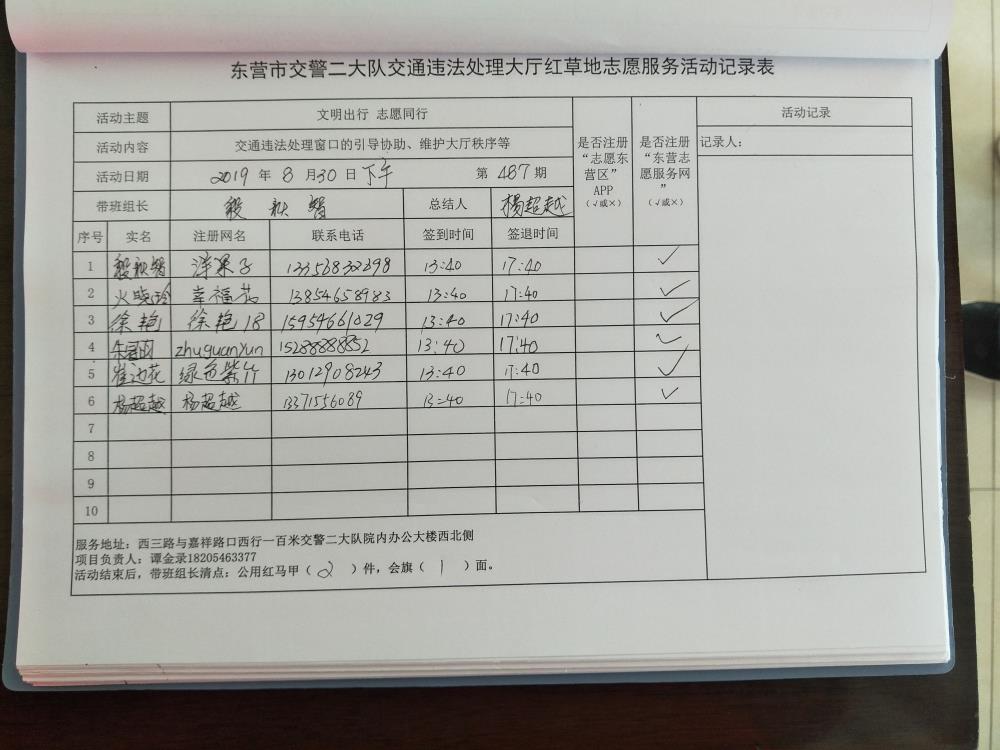 东营市交警二大队交通违法处理大厅红草地志愿服务活动记录表
活动主题 文明出行 志愿同行 是否注册“志愿东营区”APP（√或×） 是否注册“东营志愿服务网”（√或×） 活动记录
活动内容 交通违法处理窗口的引导协助、维护大厅秩序等 记录人：
活动日期 2019 年 8 月 30 日 下午 第 487 期
带班组长 总结人 杨超越
序号 实名 注册网名 联系电话 签到时间 签退时间
1 洋果子 13356832698 13:40 17:40 √
2 火晓玲 幸福花 13854658983 13:40 17:40 √
3 徐艳 徐艳18 15954661029 13:40 17:40 √
4 zhuguanyun 15288888852 13:40 17:40 √
5 崔迎花 绿色紫竹 13012908243 13:40 17:40 √
6 杨超越 杨超越 1371556089 13:40 17:40 √
7
8
9
10
服务地址：西三路与嘉祥路口西行一百米交警二大队院内办公大楼西北侧
项目负责人：谭金录18205463377
活动结束后，带班组长清点：公用红马甲（ 2 ）件，会旗（ 1 ）面。